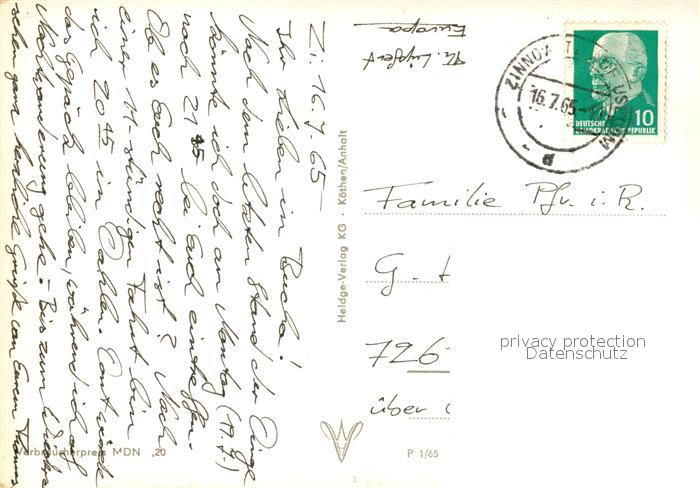 Zi. 16.7.65
Ihr Lieben in Bucha!
Nach dem letzten Stand der Dinge
könnte ich doch am Montag (19.7.)
nach 21 45 bei Euch eintreffen.
Ob es Euch recht ist? Nach
einer 11-stündigen Fahrt bin
ich 20 45 in Dahlen. Dort wird
das Gepäck bleiben, während ich auf
Nachtwanderung gehe. Bis zum
sehen ganz herzliche Grüße von Eurem Thomas
Verbraucherpreis MDN ,20
Heldge-Verlag KG · Köthen/Anhalt
P 1/65
Europa
ZINNOWITZ
16.7.65
10
DEUTSCHE
DEMOKRATISCHE REPUBLIK
Familie Pfr. i. R.
G.
726
über
privacy protection
Datenschutz